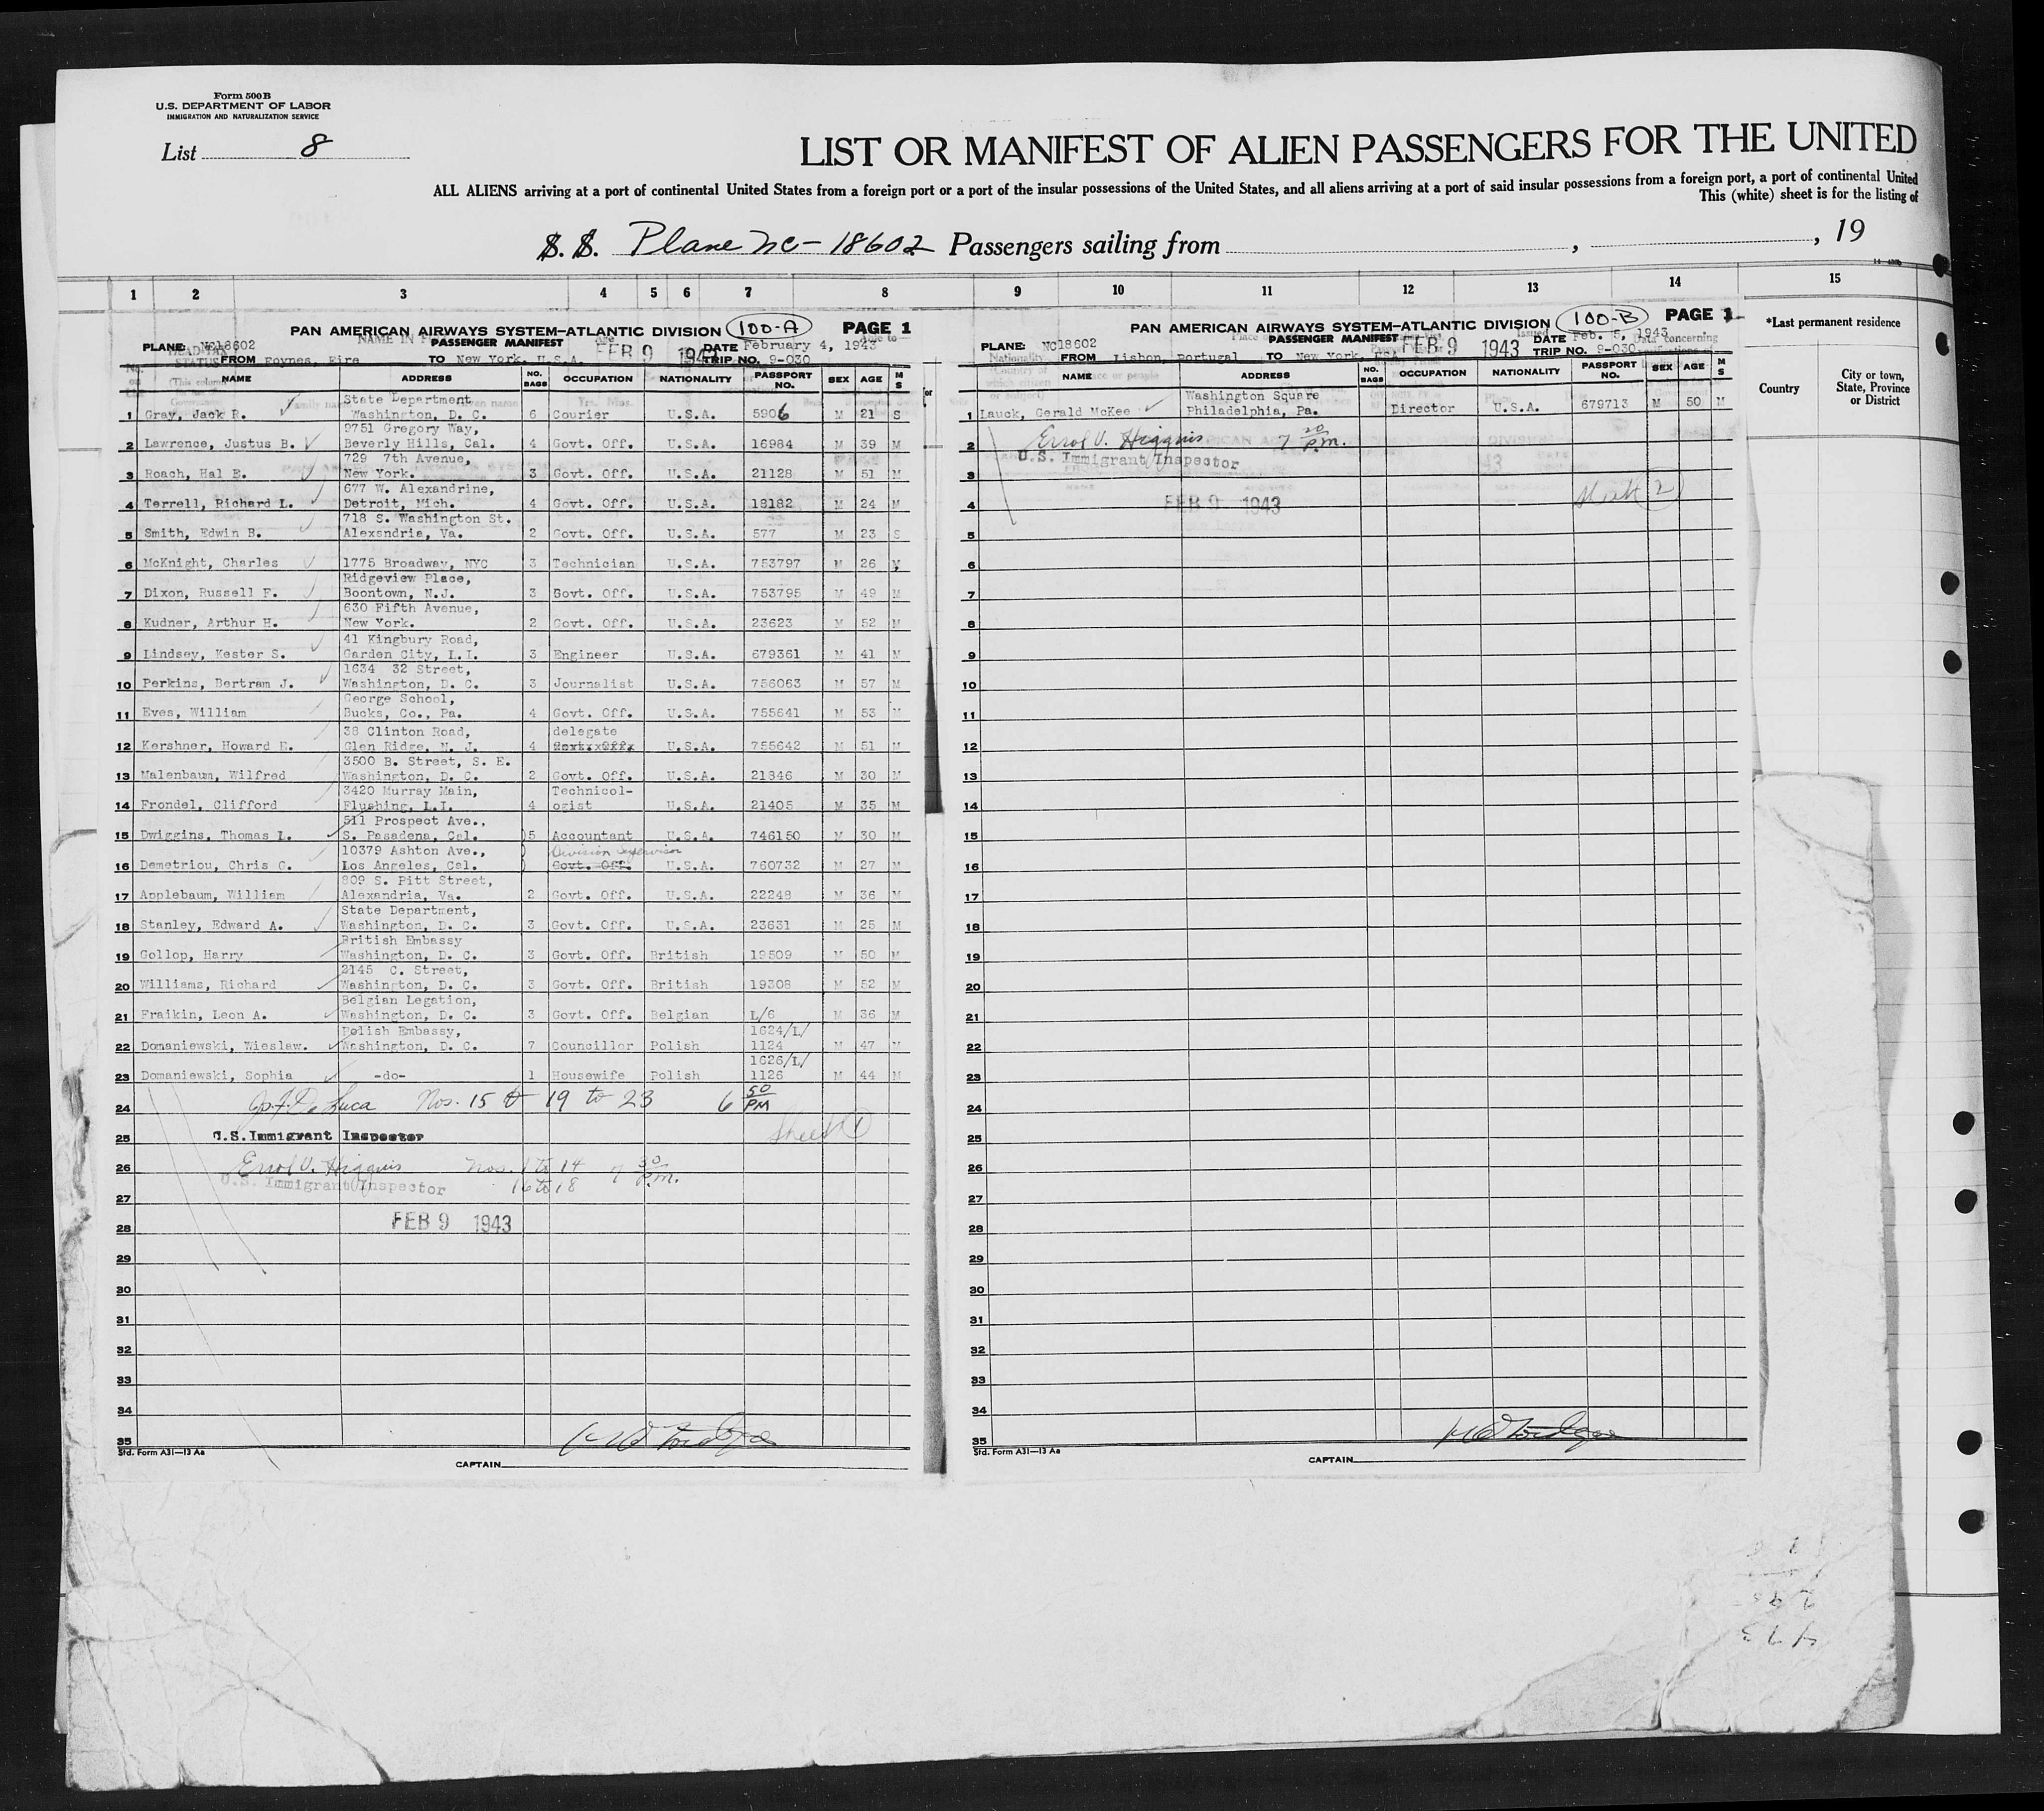 Form 500B
U.S. DEPARTMENT OF LABOR
IMMIGRATION AND NATURALIZATION SERVICE
List 8
LIST OR MANIFEST OF ALIEN PASSENGERS FOR THE UNITED
ALL ALIENS arriving at a port of continental United States from a foreign port or a port of the insular possessions of the United States, and all aliens arriving at a port of said insular possessions from a foreign port, a port of continental United
This (white) sheet is for the listing of
S. S. Plane NC-18602 Passengers sailing from , , 19
1 2 3 4 5 6 7 8 9 10 11 12 13 14 15
*Last permanent residence
Country
City or town, State, Province or District
PAN AMERICAN AIRWAYS SYSTEM–ATLANTIC DIVISION 100-A PAGE 1
PLANE: NC18602 PASSENGER MANIFEST FEB 9 1943 DATE February 4, 1943
FROM Foynes, Eire TO New York, U.S.A. TRIP NO. 9-030
NAME ADDRESS NO. BAGS OCCUPATION NATIONALITY PASSPORT NO. SEX AGE M S
State Department
1 Gray, Jack R. Washington, D. C. 6 Courier U.S.A. 5906 M 21 S
9751 Gregory Way,
2 Lawrence, Justus B. Beverly Hills, Cal. 4 Govt. Off. U.S.A. 16984 M 39 M
729 7th Avenue,
3 Roach, Hal E. New York. 3 Govt. Off. U.S.A. 21128 M 51 M
677 W. Alexandrine,
4 Terrell, Richard L. Detroit, Mich. 4 Govt. Off. U.S.A. 18182 M 24 M
718 S. Washington St.
5 Smith, Edwin B. Alexsndria, Va. 2 Govt. Off. U.S.A. 577 M 23 S
6 McKnight, Charles 1775 Broadway, NYC 3 Technician U.S.A. 753797 M 26 M
Ridgeview Place,
7 Dixon, Russell F. Boontown, N.J. 3 Govt. Off. U.S.A. 753795 M 49 M
630 Fifth Avenue,
8 Kudner, Arthur H. New York. 2 Govt. Off. U.S.A. 23623 M 52 M
41 Kingbury Road,
9 Lindsey, Kester S. Garden City, L.I. 3 Engineer U.S.A. 679361 M 41 M
1634 32 Street,
10 Perkins, Bertram J. Washington, D. C. 3 Journalist U.S.A. 756063 M 57 M
George School,
11 Eves, William Bucks, Co., Pa. 4 Govt. Off. U.S.A. 755641 M 53 M
38 Clinton Road, delegate
12 Kershner, Howard E. Glen Ridge, N. J. 4 U.S.A. 755642 M 51 M
3500 B. Street, S. E.
13 Malenbaum, Wilfred Washington, D. C. 2 Govt. Off. U.S.A. 21846 M 30 M
3420 Murray Main, Technicol-
14 Frondel, Clifford Flushing, L.I. 4 ogist U.S.A. 21405 M 35 M
511 Prospect Ave.,
15 Dwiggins, Thomas L. S. Pasadena, Cal. 5 Accountant U.S.A. 746150 M 30 M
10379 Ashton Ave., Division Supervisor
16 Demetriou, Chris G. Los Angeles, Cal. Govt. Off. U.S.A. 760732 M 27 M
809 S. Pitt Street,
17 Applebaum, William Alexandria, Va. 2 Govt. Off. U.S.A. 22248 M 36 M
State Department,
18 Stanley, Edward A. Washington, D. C. 3 Govt. Off. U.S.A. 23631 M 25 M
British Embassy
19 Gollop, Harry Washington, D. C. 3 Govt. Off. British 19509 M 50 M
2145 C. Street,
20 Williams, Richard Washington, D. C. 3 Govt. Off. British 19308 M 52 M
Belgian Legation,
21 Fraikin, Leon A. Washington, D. C. 3 Govt. Off. Belgian L/6 M 36 M
Polish Embassy, 1624/L/
22 Domaniewski, Wieslaw. Washington, D. C. 7 Counciller Polish 1124 M 47 M
1626/L/
23 Domaniewski, Sophia -do- 1 Housewife Polish 1126 M 44 M
24 Jos. J. De Luca Nos. 15 & 19 to 23 6 50 PM
25 U.S. Immigrant Inspector Sheet 1
26 Errol V. Higgins Nos. 1 to 14 7 30 P.M.
U.S. Immigrant Inspector 16 to 18
27
28 FEB 9 1943
29
30
31
32
33
34
35
Std. Form A31—13 Aa
CAPTAIN
PAN AMERICAN AIRWAYS SYSTEM–ATLANTIC DIVISION 100-B PAGE 1
PLANE: NC18602 PASSENGER MANIFEST FEB 9 1943 DATE Feb. 5, 1943
FROM Lisbon, Portugal TO New York, TRIP NO. 9-030
NAME ADDRESS NO. BAGS OCCUPATION NATIONALITY PASSPORT NO. SEX AGE M S
Washington Square
1 Lauck, Gerald McKee Philadelphia, Pa. Director U.S.A. 679713 M 50 M
2 Errol V. Higgins 7 20 P.M.
U.S. Immigrant Inspector
3
4 FEB 9 1943 Sheet 2
5
6
7
8
9
10
11
12
13
14
15
16
17
18
19
20
21
22
23
24
25
26
27
28
29
30
31
32
33
34
35
Std. Form A31—13 Aa
CAPTAIN